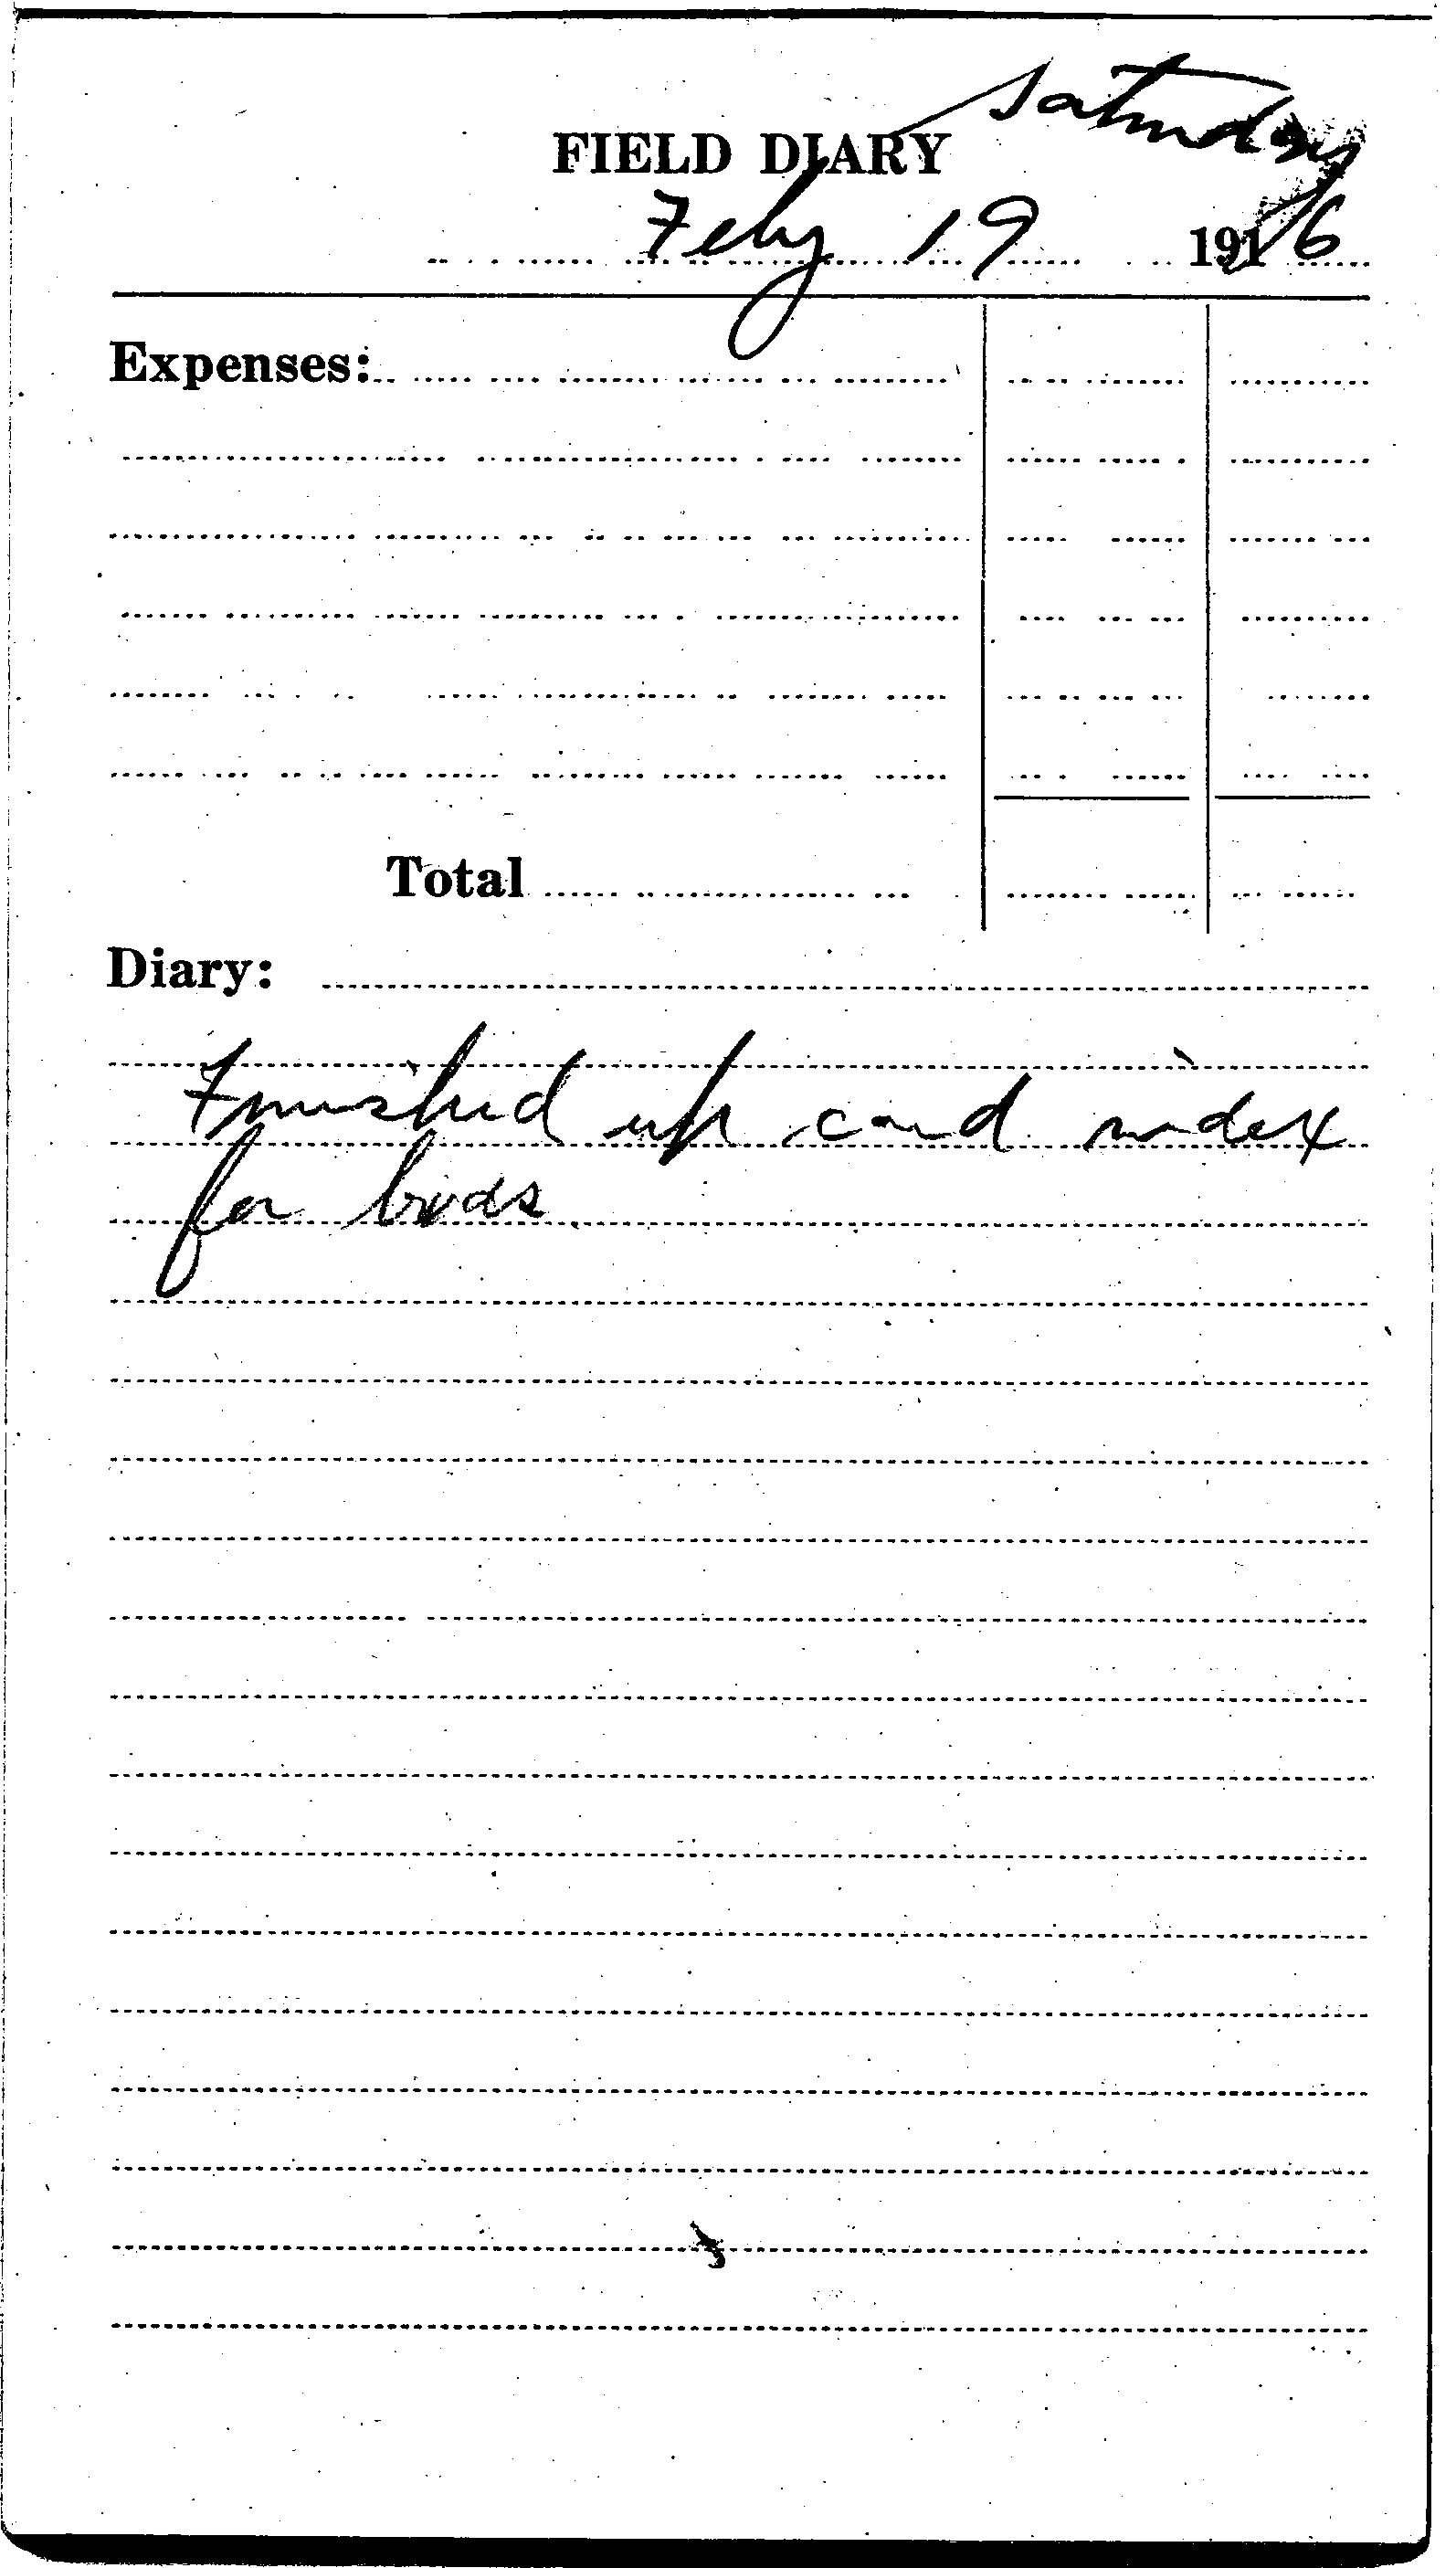 Saturday
FIELD DIARY
Feby 19 1916
Expenses:
Total
Diary:
Finished up card index
for birds